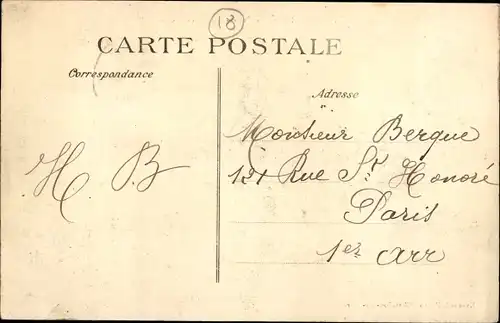 18
CARTE POSTALE
Correspondance
Adresse
Monsieur Bergue
121 Rue St Honoré
Paris
1er arr
H. B.